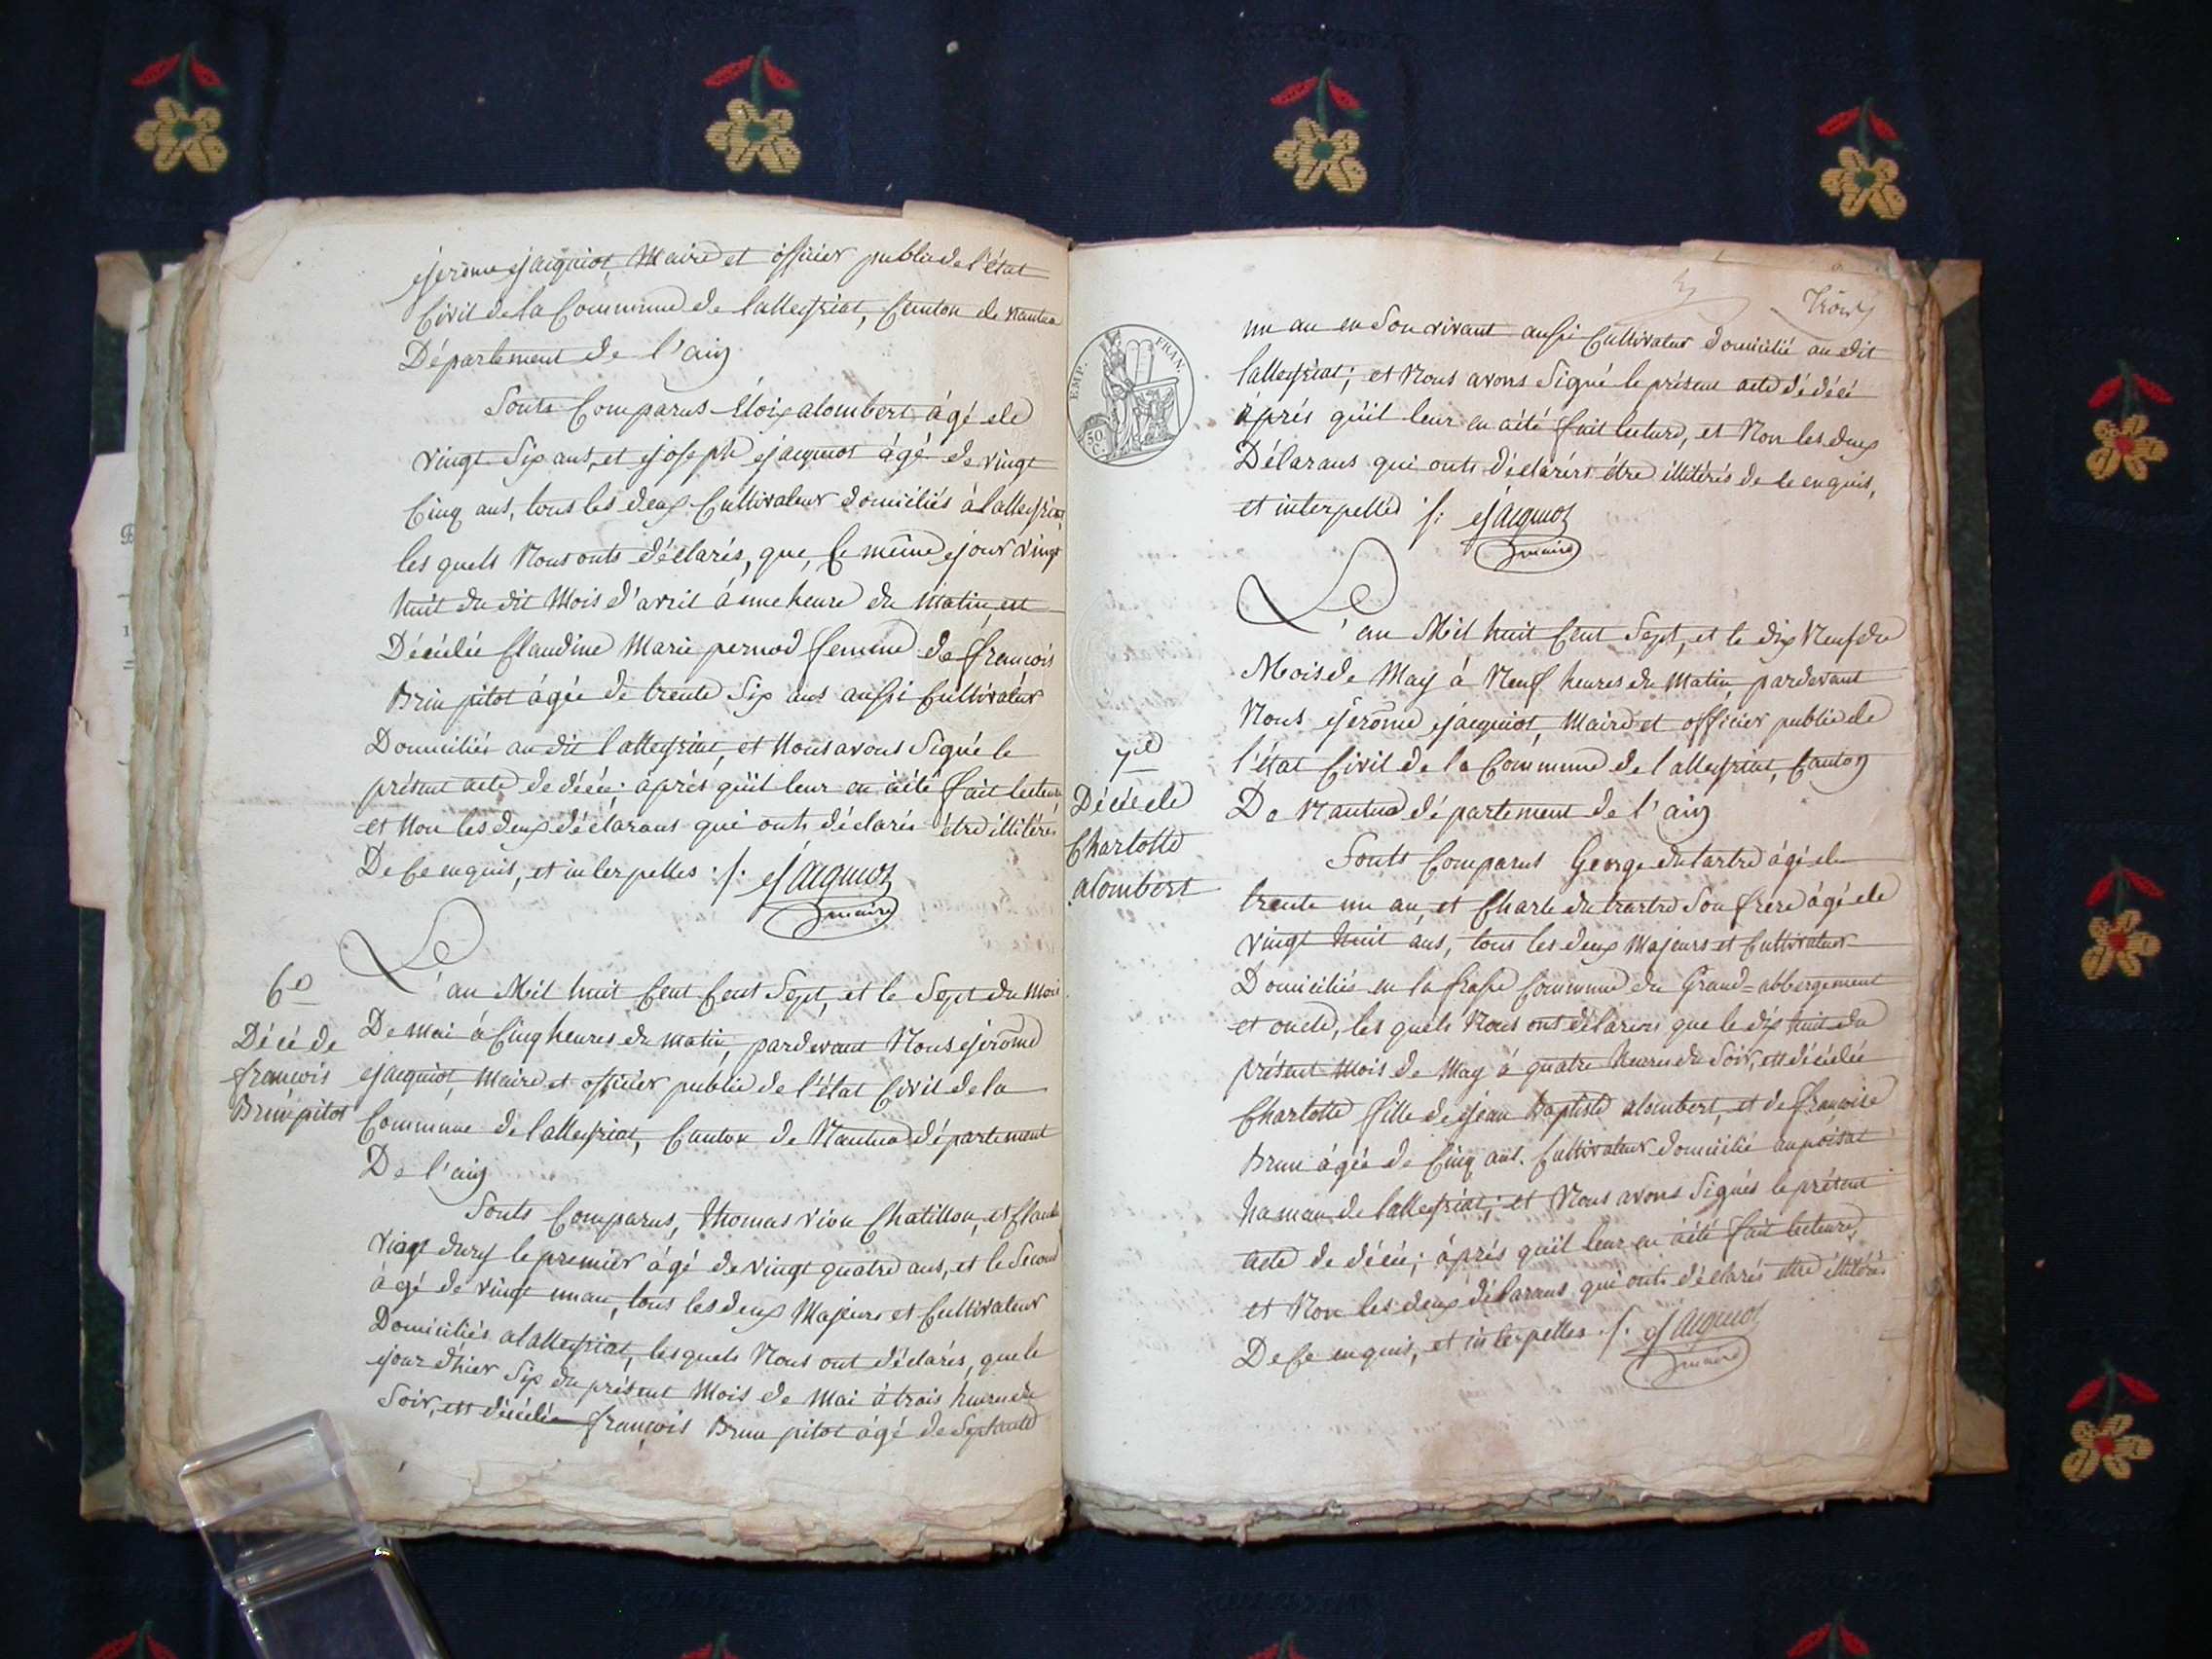 jerôme jacquiot, Maire et officier public de l'état
Civil de la Commune de lalleyriat, Canton de nantua
Département de l'ain
Sonts Comparus Eloix alombert âgé de
vingt Six ans, et joseph jacquiot âgé de vingt
Cinq ans, tous les deux Cultivateur domiciliés à lalleyriat,
les quels Nous onts déclarés, que, Ce même jour vingt
huit du dit Mois d'avril à une heure du matin, est
Décédée Claudine Marie pernod femme de françois
Brun pitot âgée de trente Six ans aussi Cultivateur
Domiciliés au dit lalleyriat, et Nous avons Signé le
présent acte de décé: après qüit leur en àété fait lecture
et Non les deux déclarans qui onts déclarés être illitérés
De Ce enquis, et interpelles ./. jacquiot
maire
L'an Mil huit Cent Cent Sept, et le Sept du mois
De mai à Cinq heures du matin, pardevant Nous jerôme
jacquiot, Maire et officier public de l'état Civil de la
Commune de lalleyriat, Canton de Nantua département
De l'ain
6e
Décé de
françois
Brun pitot
Sonts Comparus, thomas vion Chatillon, et Claude
dury le premier âgé de vingt quatre ans, et le Second
âgé de vingt un an, tous les deux Majeurs et Cultivateur
Domiciliés alalleyriat, les quels Nous ont déclarés, que le
jour dhier Six du présent Mois de Mai à trois heures du
Soir, est décédée françois Brun pitot âgé de Septante
trois
EMP. FRAN.
50 C.
un an en Son vivant aussi Cultivateur domicilié au dit
lalleyriat; et Nous avons Signé le présent acte dédécé
àprés qüit leur en àété fait lecture, et Non les deux
Délarans qui onts déclarérs être illitérés de Ce enquis,
et interpellés ./. jacquiot
maire
L'an Mil huit Cent Sept, et le dix Neuf du
Mois de May à Neuf heures du Matin, pardevant
Nous jerôme jacquiot, Maire et officier public de
l'état Civil de la Commune de lalleyriat, Canton
De Nantua département de l'ain
7e
Décé de
Charlotte
alombert
Sonts Comparus George dutartre âgé de
trente un an, et Charle du tartre Son frere âgé de
vingt huit ans, tous les deux Majeurs et Cultivateur
Domiciliés en la Commune du Grand-abbergement
et oncle, les quels Nous ont délarers que le dix huit du
présent Mois de May à quatre heures du Soir, est décédée
Charlotte fille de jean Baptiste alombert, et de françoise
Brun âgée de Cinq ans. Cultivateur domicilié au poisat
hamau de lalleyriat; et Nous avons Signés le présent
acte de décé; àprés qüit leur en àété fait lecture,
et Non les deux délarans qui onts déclarés être illitérés
De Ce enquis, et interpelles ./. jacquiot
maire